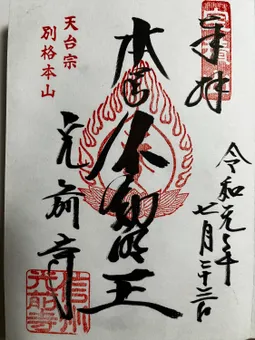 奉拝
令和元年
七月二十三日
本国不動明王
天台宗
別格本山
光前寺
信州
光前寺